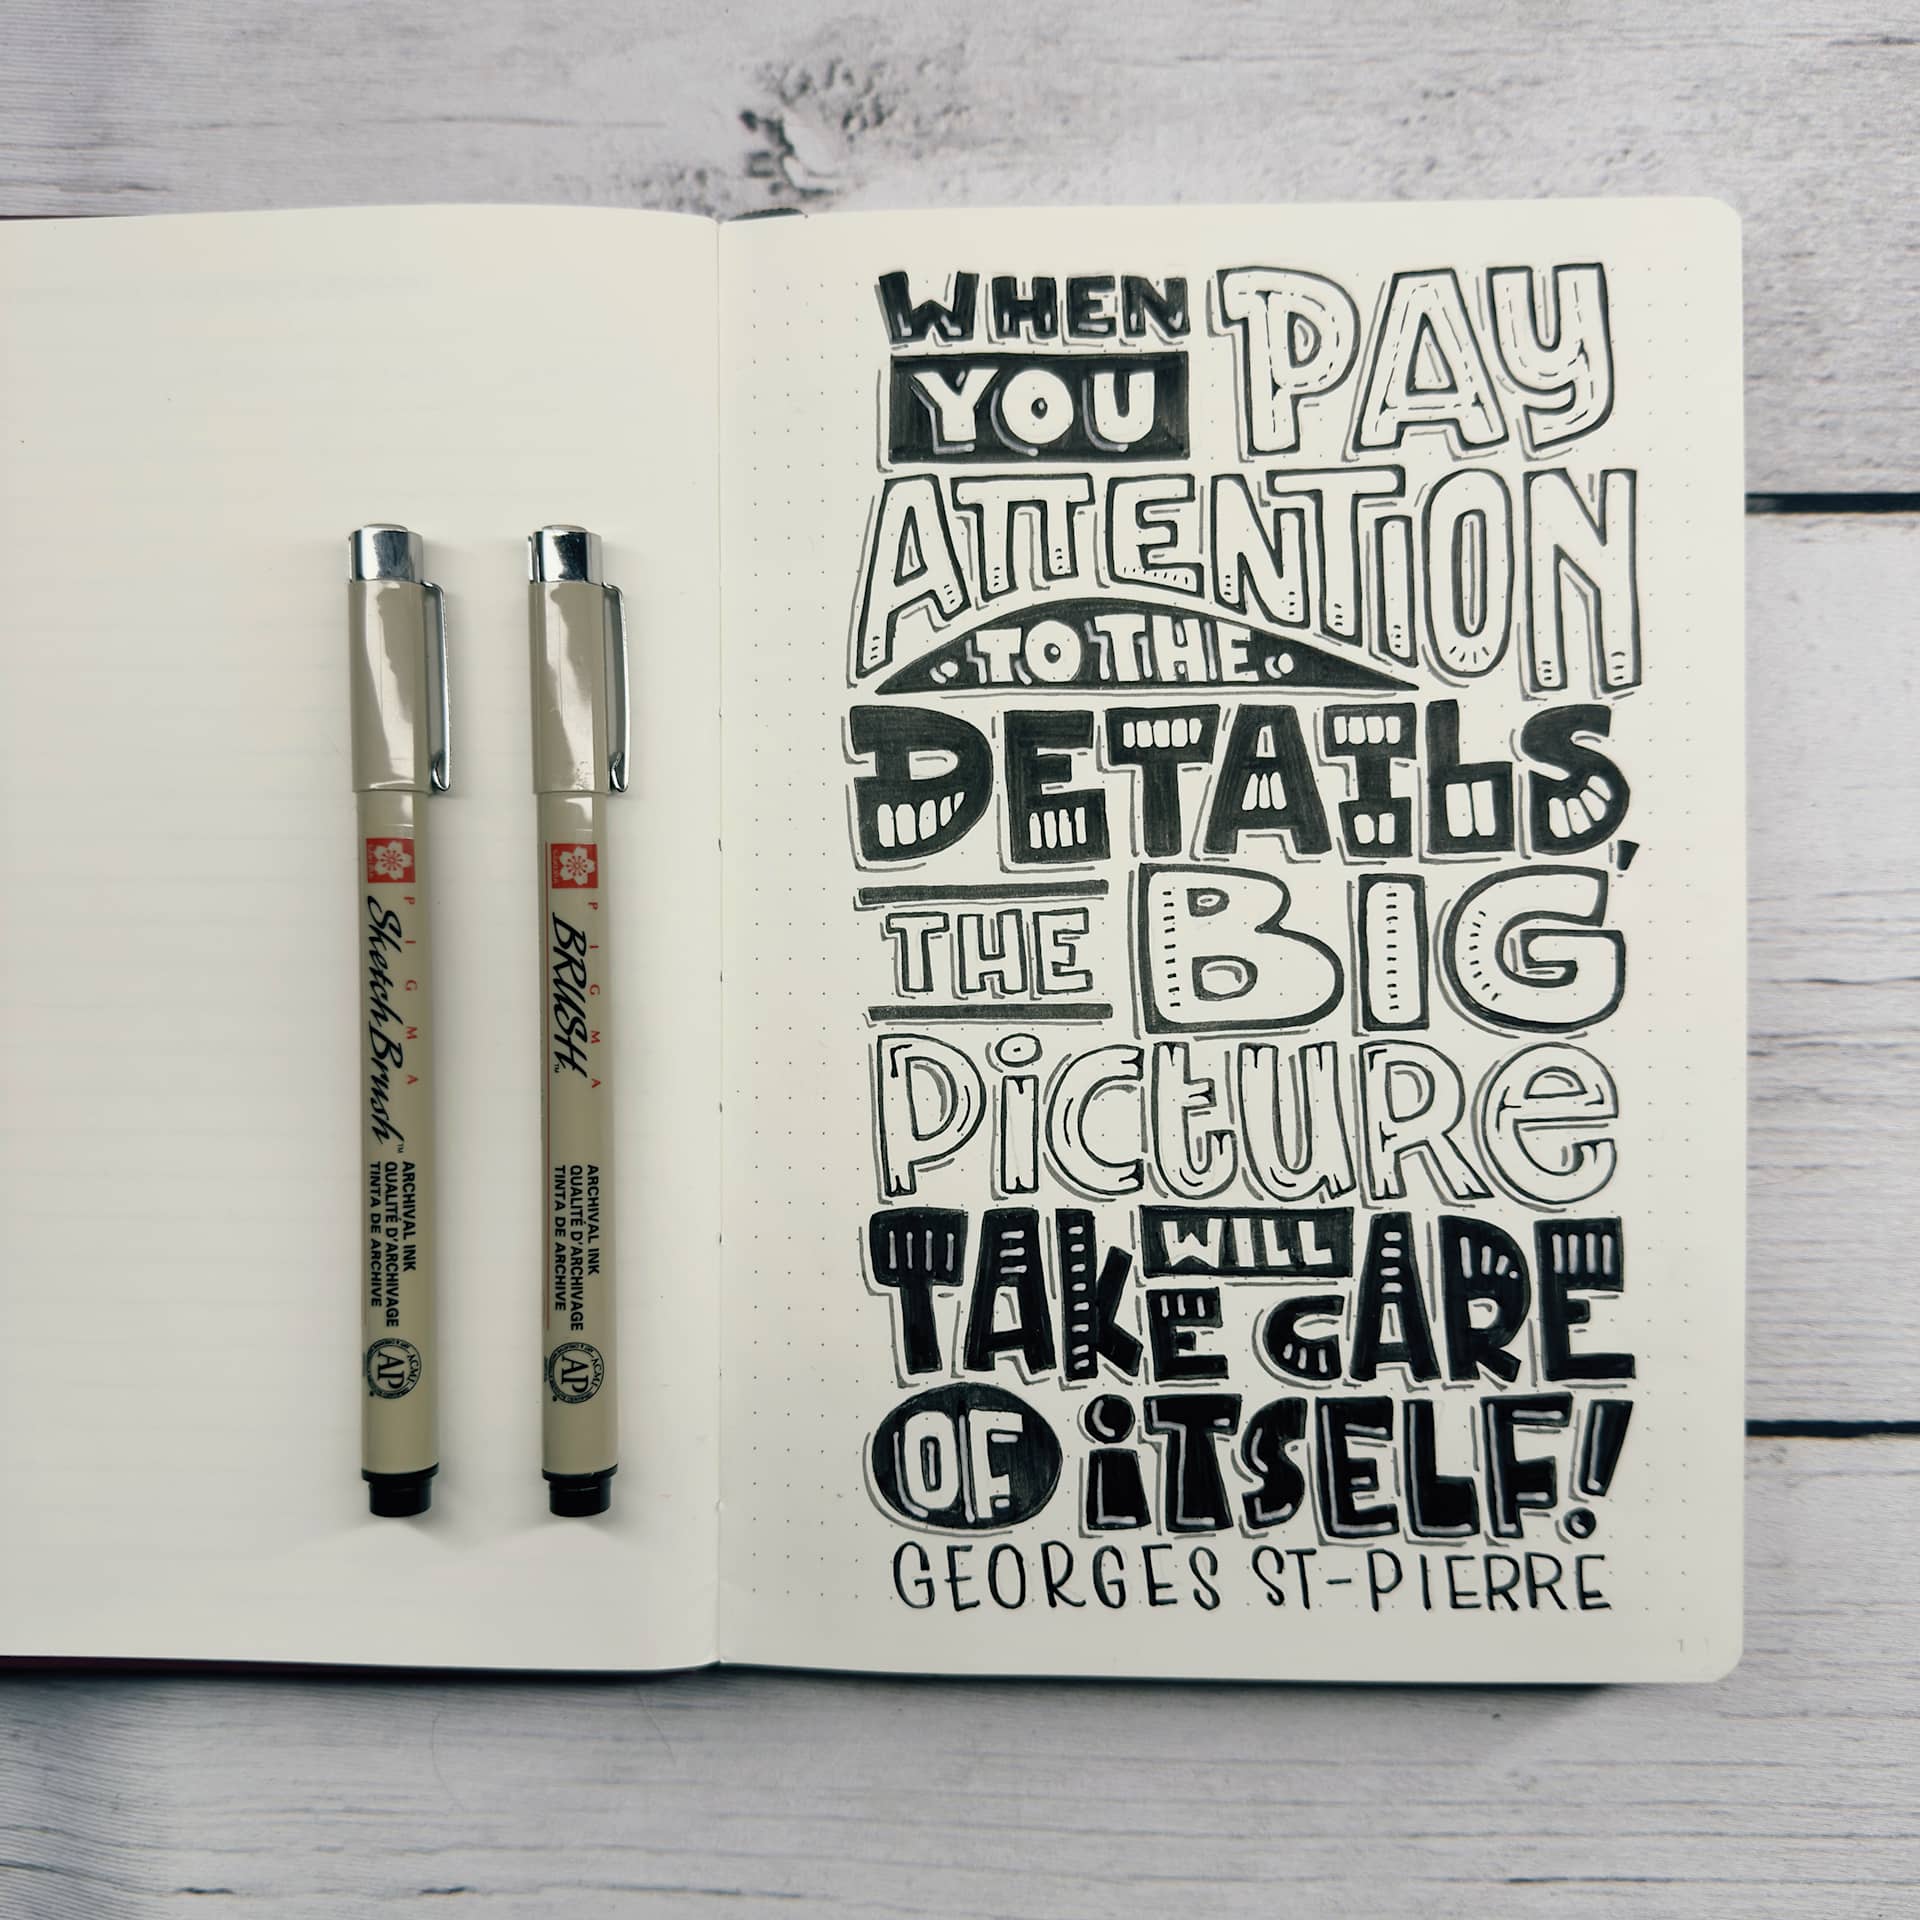 PIGMA
Sketch Brush™
ARCHIVAL INK
QUALITÉ D'ARCHIVAGE
TINTA DE ARCHIVE
AP
PIGMA
BRUSH™
ARCHIVAL INK
QUALITÉ D'ARCHIVAGE
TINTA DE ARCHIVE
AP
WHEN
YOU PAY
ATTENTION
TO THE
DETAILS,
THE BIG
PictuRe
WILL
TAKE CARE
OF iTSELF!
GEORGES ST-PIERRE
1